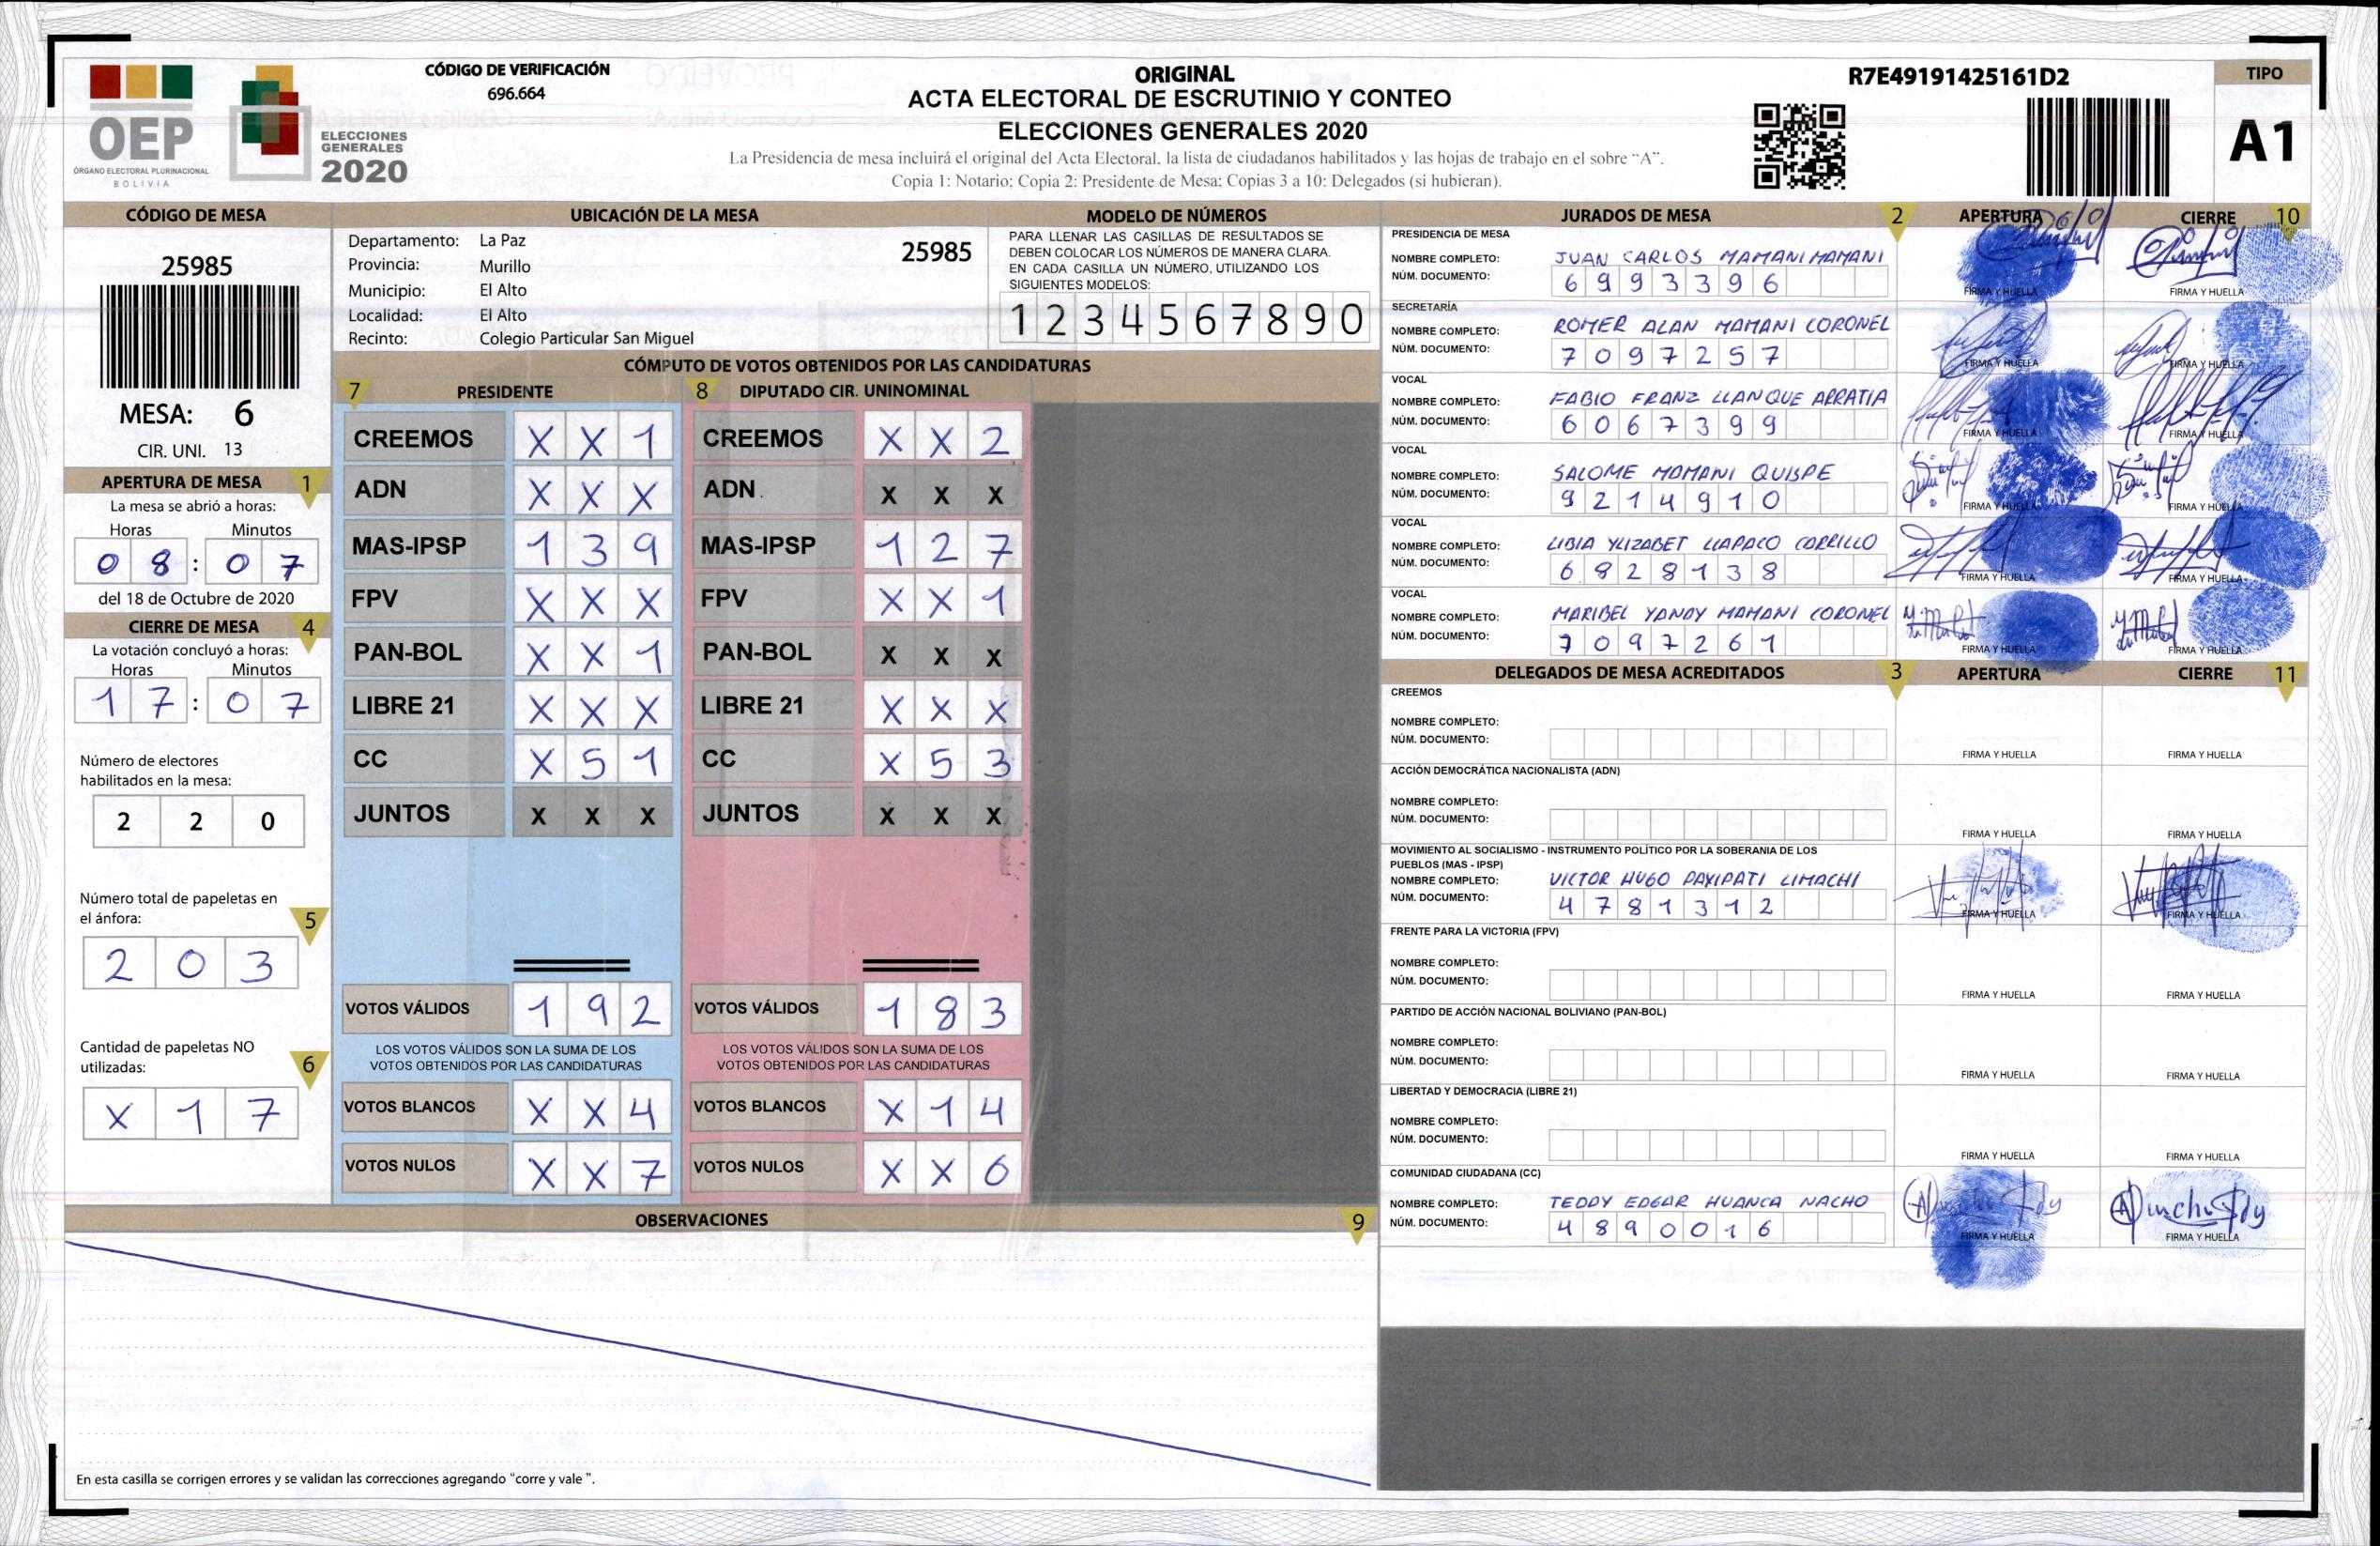 OEP
ÓRGANO ELECTORAL PLURINACIONAL
BOLIVIA
ELECCIONES
GENERALES
2020
CÓDIGO DE VERIFICACIÓN
696.664
ORIGINAL
ACTA ELECTORAL DE ESCRUTINIO Y CONTEO
ELECCIONES GENERALES 2020
La Presidencia de mesa incluirá el original del Acta Electoral, la lista de ciudadanos habilitados y las hojas de trabajo en el sobre "A".
Copia 1: Notario; Copia 2: Presidente de Mesa; Copias 3 a 10: Delegados (si hubieran).
R7E49191425161D2
TIPO
A1
CÓDIGO DE MESA
25985
MESA: 6
CIR. UNI. 13
APERTURA DE MESA 1
La mesa se abrió a horas:
Horas Minutos
0 8 : 0 7
del 18 de Octubre de 2020
CIERRE DE MESA 4
La votación concluyó a horas:
Horas Minutos
1 7 : 0 7
Número de electores
habilitados en la mesa:
2 2 0
Número total de papeletas en
el ánfora: 5
2 0 3
Cantidad de papeletas NO
utilizadas: 6
X 1 7
UBICACIÓN DE LA MESA
Departamento: La Paz 25985
Provincia: Murillo
Municipio: El Alto
Localidad: El Alto
Recinto: Colegio Particular San Miguel
MODELO DE NÚMEROS
PARA LLENAR LAS CASILLAS DE RESULTADOS SE
DEBEN COLOCAR LOS NÚMEROS DE MANERA CLARA.
EN CADA CASILLA UN NÚMERO, UTILIZANDO LOS
SIGUIENTES MODELOS:
1 2 3 4 5 6 7 8 9 0
CÓMPUTO DE VOTOS OBTENIDOS POR LAS CANDIDATURAS
7 PRESIDENTE 8 DIPUTADO CIR. UNINOMINAL
CREEMOS X X 1 CREEMOS X X 2
ADN X X X ADN X X X
MAS-IPSP 1 3 9 MAS-IPSP 1 2 7
FPV X X X FPV X X 1
PAN-BOL X X 1 PAN-BOL X X X
LIBRE 21 X X X LIBRE 21 X X X
CC X 5 1 CC X 5 3
JUNTOS X X X JUNTOS X X X
VOTOS VÁLIDOS 1 9 2 VOTOS VÁLIDOS 1 8 3
LOS VOTOS VÁLIDOS SON LA SUMA DE LOS LOS VOTOS VÁLIDOS SON LA SUMA DE LOS
VOTOS OBTENIDOS POR LAS CANDIDATURAS VOTOS OBTENIDOS POR LAS CANDIDATURAS
VOTOS BLANCOS X X 4 VOTOS BLANCOS X 1 4
VOTOS NULOS X X 7 VOTOS NULOS X X 6
OBSERVACIONES 9
En esta casilla se corrigen errores y se validan las correcciones agregando "corre y vale ".
JURADOS DE MESA 2 APERTURA CIERRE 10
PRESIDENCIA DE MESA
NOMBRE COMPLETO: JUAN CARLOS MAMANI MAMANI
NÚM. DOCUMENTO: 6 9 9 3 3 9 6
FIRMA Y HUELLA FIRMA Y HUELLA
SECRETARÍA
NOMBRE COMPLETO: ROMER ALAN MAMANI CORONEL
NÚM. DOCUMENTO: 7 0 9 7 2 5 7
FIRMA Y HUELLA FIRMA Y HUELLA
VOCAL
NOMBRE COMPLETO: FABIO FRANZ LLANQUE ARRATIA
NÚM. DOCUMENTO: 6 0 6 7 3 9 9
FIRMA Y HUELLA FIRMA Y HUELLA
VOCAL
NOMBRE COMPLETO: SALOME MAMANI QUISPE
NÚM. DOCUMENTO: 9 2 1 4 9 1 0
FIRMA Y HUELLA FIRMA Y HUELLA
VOCAL
NOMBRE COMPLETO: LIBIA YLIZABET LLAPACO CARRILLO
NÚM. DOCUMENTO: 6 8 2 8 1 3 8
FIRMA Y HUELLA FIRMA Y HUELLA
VOCAL
NOMBRE COMPLETO: MARIBEL YANDY MAMANI CORONEL
NÚM. DOCUMENTO: 7 0 9 7 2 6 1
FIRMA Y HUELLA FIRMA Y HUELLA
DELEGADOS DE MESA ACREDITADOS 3 APERTURA CIERRE 11
CREEMOS
NOMBRE COMPLETO:
NÚM. DOCUMENTO:
FIRMA Y HUELLA FIRMA Y HUELLA
ACCIÓN DEMOCRÁTICA NACIONALISTA (ADN)
NOMBRE COMPLETO:
NÚM. DOCUMENTO:
FIRMA Y HUELLA FIRMA Y HUELLA
MOVIMIENTO AL SOCIALISMO - INSTRUMENTO POLÍTICO POR LA SOBERANIA DE LOS
PUEBLOS (MAS - IPSP)
NOMBRE COMPLETO: VICTOR HUGO PAXIPATI LIMACHI
NÚM. DOCUMENTO: 4 7 8 1 3 1 2
FIRMA Y HUELLA FIRMA Y HUELLA
FRENTE PARA LA VICTORIA (FPV)
NOMBRE COMPLETO:
NÚM. DOCUMENTO:
FIRMA Y HUELLA FIRMA Y HUELLA
PARTIDO DE ACCIÓN NACIONAL BOLIVIANO (PAN-BOL)
NOMBRE COMPLETO:
NÚM. DOCUMENTO:
FIRMA Y HUELLA FIRMA Y HUELLA
LIBERTAD Y DEMOCRACIA (LIBRE 21)
NOMBRE COMPLETO:
NÚM. DOCUMENTO:
FIRMA Y HUELLA FIRMA Y HUELLA
COMUNIDAD CIUDADANA (CC)
NOMBRE COMPLETO: TEDDY EDGAR HUANCA NACHO
NÚM. DOCUMENTO: 4 8 9 0 0 1 6
FIRMA Y HUELLA FIRMA Y HUELLA